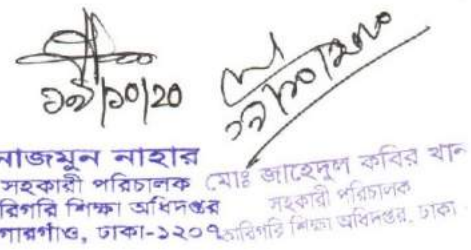 ১৯/১০/20
নাজমুন নাহার
সহকারী পরিচালক
রিগরি শিক্ষা অধিদপ্তর
গারগাঁও, ঢাকা-১২০৭
মোঃ জাহেদুল কবির খান
সহকারী পরিচালক
কারিগরি শিক্ষা অধিদপ্তর, ঢাকা